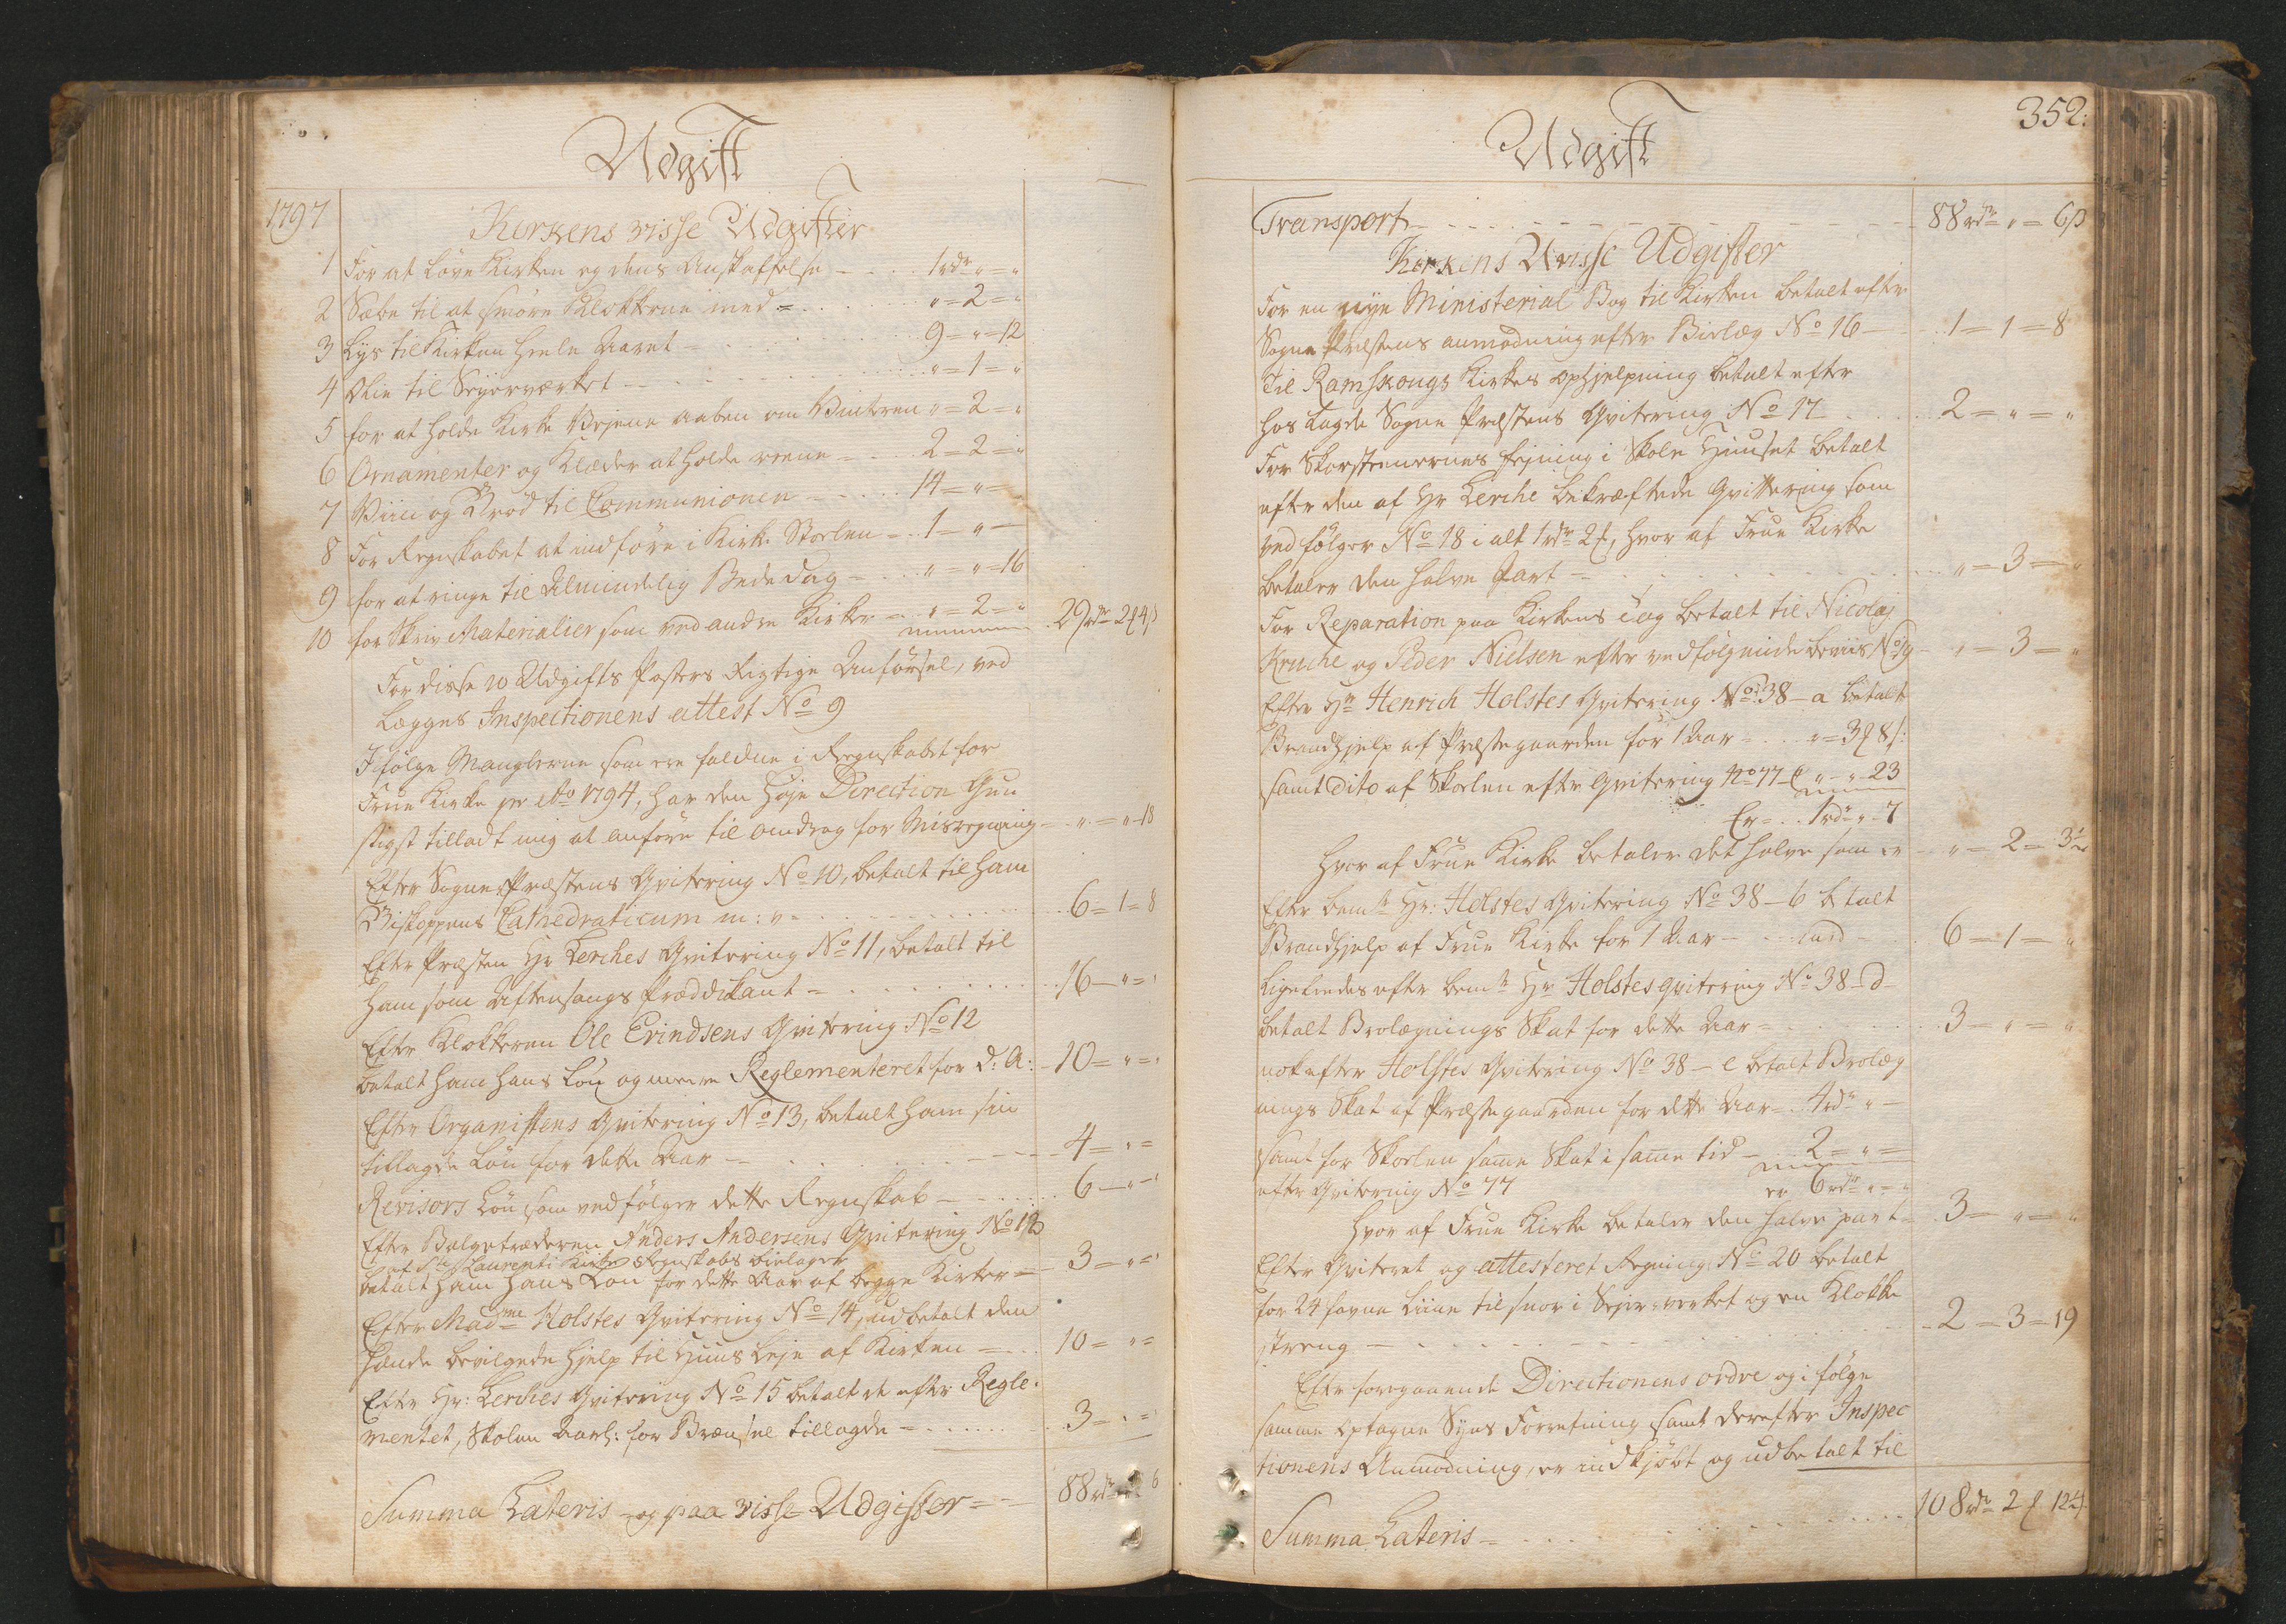 Udgift
1797
Kirkens visse Udgifter
1 For at love Kirken og dens Anskaffelse - 1 rdr " = "
2 Sæbe til at smöre Klokkerne med = " = 2 = "
3 Lys til Kirken heele Aaret - 9 = " = 12
4 Olie til Seyerværket - " = 1 = "
5 for at holde Kirke Vejene aaben om Vinteren " = 2 = "
6 Ornamenter og Klæder at holde reene - 2 = 2 = "
7 Viin og Bröd til Communionen - 14 = " =
8 For Regnskabet at indföre i Kirke Stoelen - 1 - " -
9 for at ringe til Almindelig Bededag - " = " = 16
10 for Skriv Materialier som ved andre Kirker - " = 2 = " 29 rdr 2 ƒ 4 β
For disse 10 Udgifts Posters Rigtige Anförsel, ved
Lægges Inspectionens attest No 9
Ifölge Manglerne som ere faldne i Regnskabet for
Frue Kirke pr Ao 1794, har den Höje Direction Gun
stigst tilladt mig at anföre til andrag for Misregning - " = " - 18
Efter Sogne Præstens Qvitering No 10, betalt til ham
Biskoppens Cathedraticum m: v - 6 = 1 = 8
Efter Præsten Hr Lerches Qvitering No 11, betalt til
ham som Aftensangs Præddikant - 16 - " = "
Efter Klokkeren Ole Erindsens Qvitering No 12
betalt ham hans Lön og meere Reglementeret for d: A: - 10 = " = "
Efter Organistens Qvitering No 13, betalt ham sin
tillagde Lön for dette Aar - 4 = " =
Revisors Lön som ved fölger dette Regnskab - 6 - " - "
Efter Belgetræderen Anders Andersens Qvitering No 13
af Sti Laurenti Kirke Regnskabs bielager
betalt ham hans Lön for dette Aar af begge Kirker = 3 - " = "
Efter Madme Holstes Qvitering No 14, udbetalt den
hende bevilgede hjelp til Huus Leje af Kirken - 10 = " =
Efter Hr: Lerches Qvitering No 15 betalt de efter Regle-
mentet, Skolen Aarl: for Brænsel tillagde - 3 - " = "
Summa Lateris og paa visse Udgifter = 88 rdr " 6
352:
Udgift
Transport - 88 rdr " = 6 β
Kirkens Uvisse Udgifter
For en nye Ministerial Bog til Kirken betalt efter
Sogne Præstens anmodning efter Bielæg No 16 - 1 = 1 = 8
Til Ramskougs Kirkes ophjelpning betalt efter
hos Lagde Sogne Præstens Qvitering No 17 - 2 = " = "
For Skorsteenernes fejning i Skole Huuset betalt
efter den af Hr Lerche bekræftede Qvittering som
ved fölger No 18 i alt 1 rdr 2 ƒ, hvor af Frue Kirke
betaler den halve Part - " = 3 = "
For Reparation paa Kirkens Tag betalt til Nicolaj
Kruche og Peder Nielsen efter vedfölgende beviis No 19 - " = 3 = "
Efter Hr Henrich Holstes Qvitering No 38 - a betalt
Brandhjelp af Præstegaarden for 1 Aar - " = 3 ƒ 8 β:
samt dito af Skoelen efter Qvitering No 77 " - " - 23
Er - 1 rdr " - 7
hvor af Frue Kirke betaler det halve som er - " = 2 = 3 ½
Efter bemte Hr: Holstes Qvitering No 38 - b betalt
Brandhjelp af Frue Kirke for 1 Aar - 6 = 1 = "
Ligeleedes efter bemte Hr Holstes qvitering No 38 - d -
betalt Brolægnings Skat for dette Aar = 3 = " = "
nok efter Holstes Qvitering No 38 - e betalt Brolæg
nings Skat af Præstegaarden for dette Aar - 4 rdr " -
samt for Skoelen samme Skat i samme tid - 2 = " =
efter Qvitering No 77 er 6 rdr " = "
hvor af Frue Kirke betaler den halve part - 3 = " = "
Efter Qviteret og attesteret Regning No 20 betalt
for 24 favne Liine til snor i Sejer-verket og en Klokke
streng - 2 = 3 = 19
Efter foregaaende Directionens ordre og i fölge
samme optagne Syns Forretning samt derefter Inspec
tionens Anmodning, er indkjöbt og udbetalt til
Summa Lateris - 108 rdr 2 ƒ 12 ½